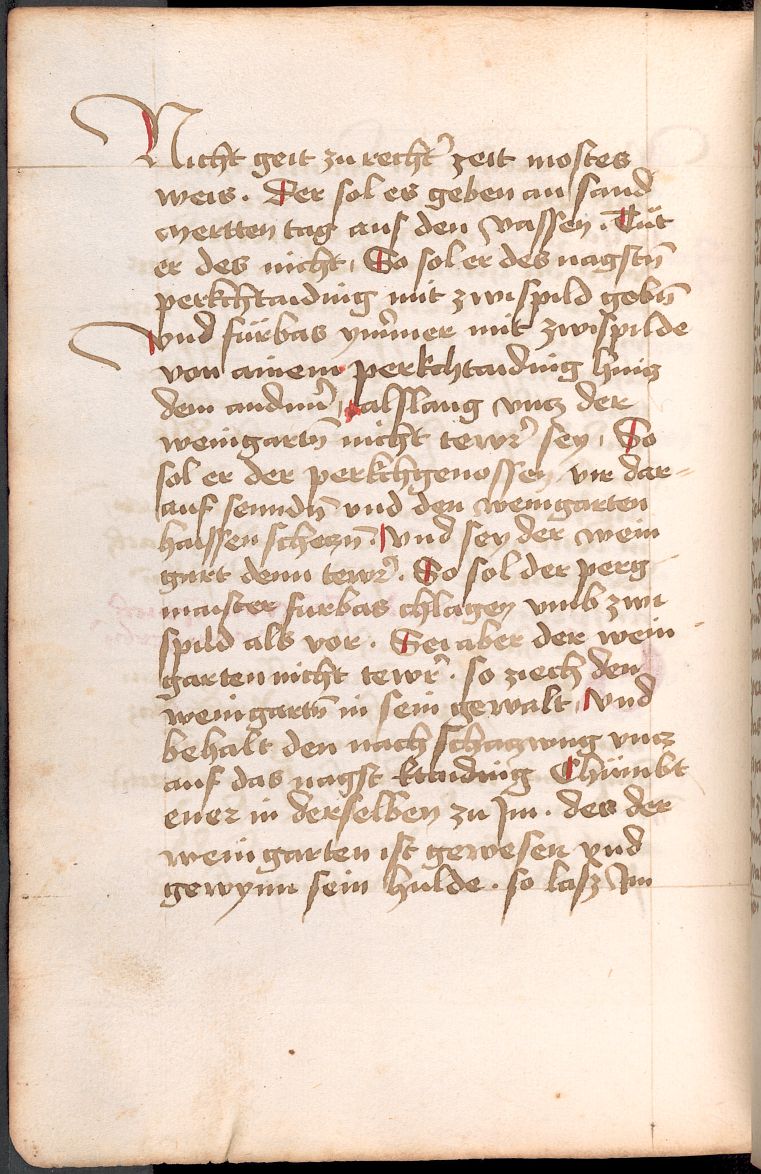 Nicht geit zu recht᷑ zeit mostes
weis . Der sol es geben an sand
mertten tag aus den vassen . Tüt
er des nicht , So sol er des nagstn̄
perkchtaiding mit zwispild gebn̄
vnd fürbas ym̄mer mit zwispilde
von ainem perkchtaiding hinz
dem andm̄ , alslang vncz der
weingartn̄ nicht tewr᷑ sey , So
sol er der perkchgenossen vir dar-
auf senndn̄ vnd den weingarten
haissen scheczn̄ . vnd sey der wein
gart denn tewr᷑ . So sol der perg
maister furbas chlagen vmb zwi
spild als vor . Sei aber der wein
garten nicht tewr᷑ . so ziech den
weingartn̄ in sein gewalt , vnd
behalt den nach schaczung vncz
auf das nagst taiding Chümbt
ener in derselben zu Im . des der
weingarten ist gewesen vnd
gewynn sein hulde . so lasz Im